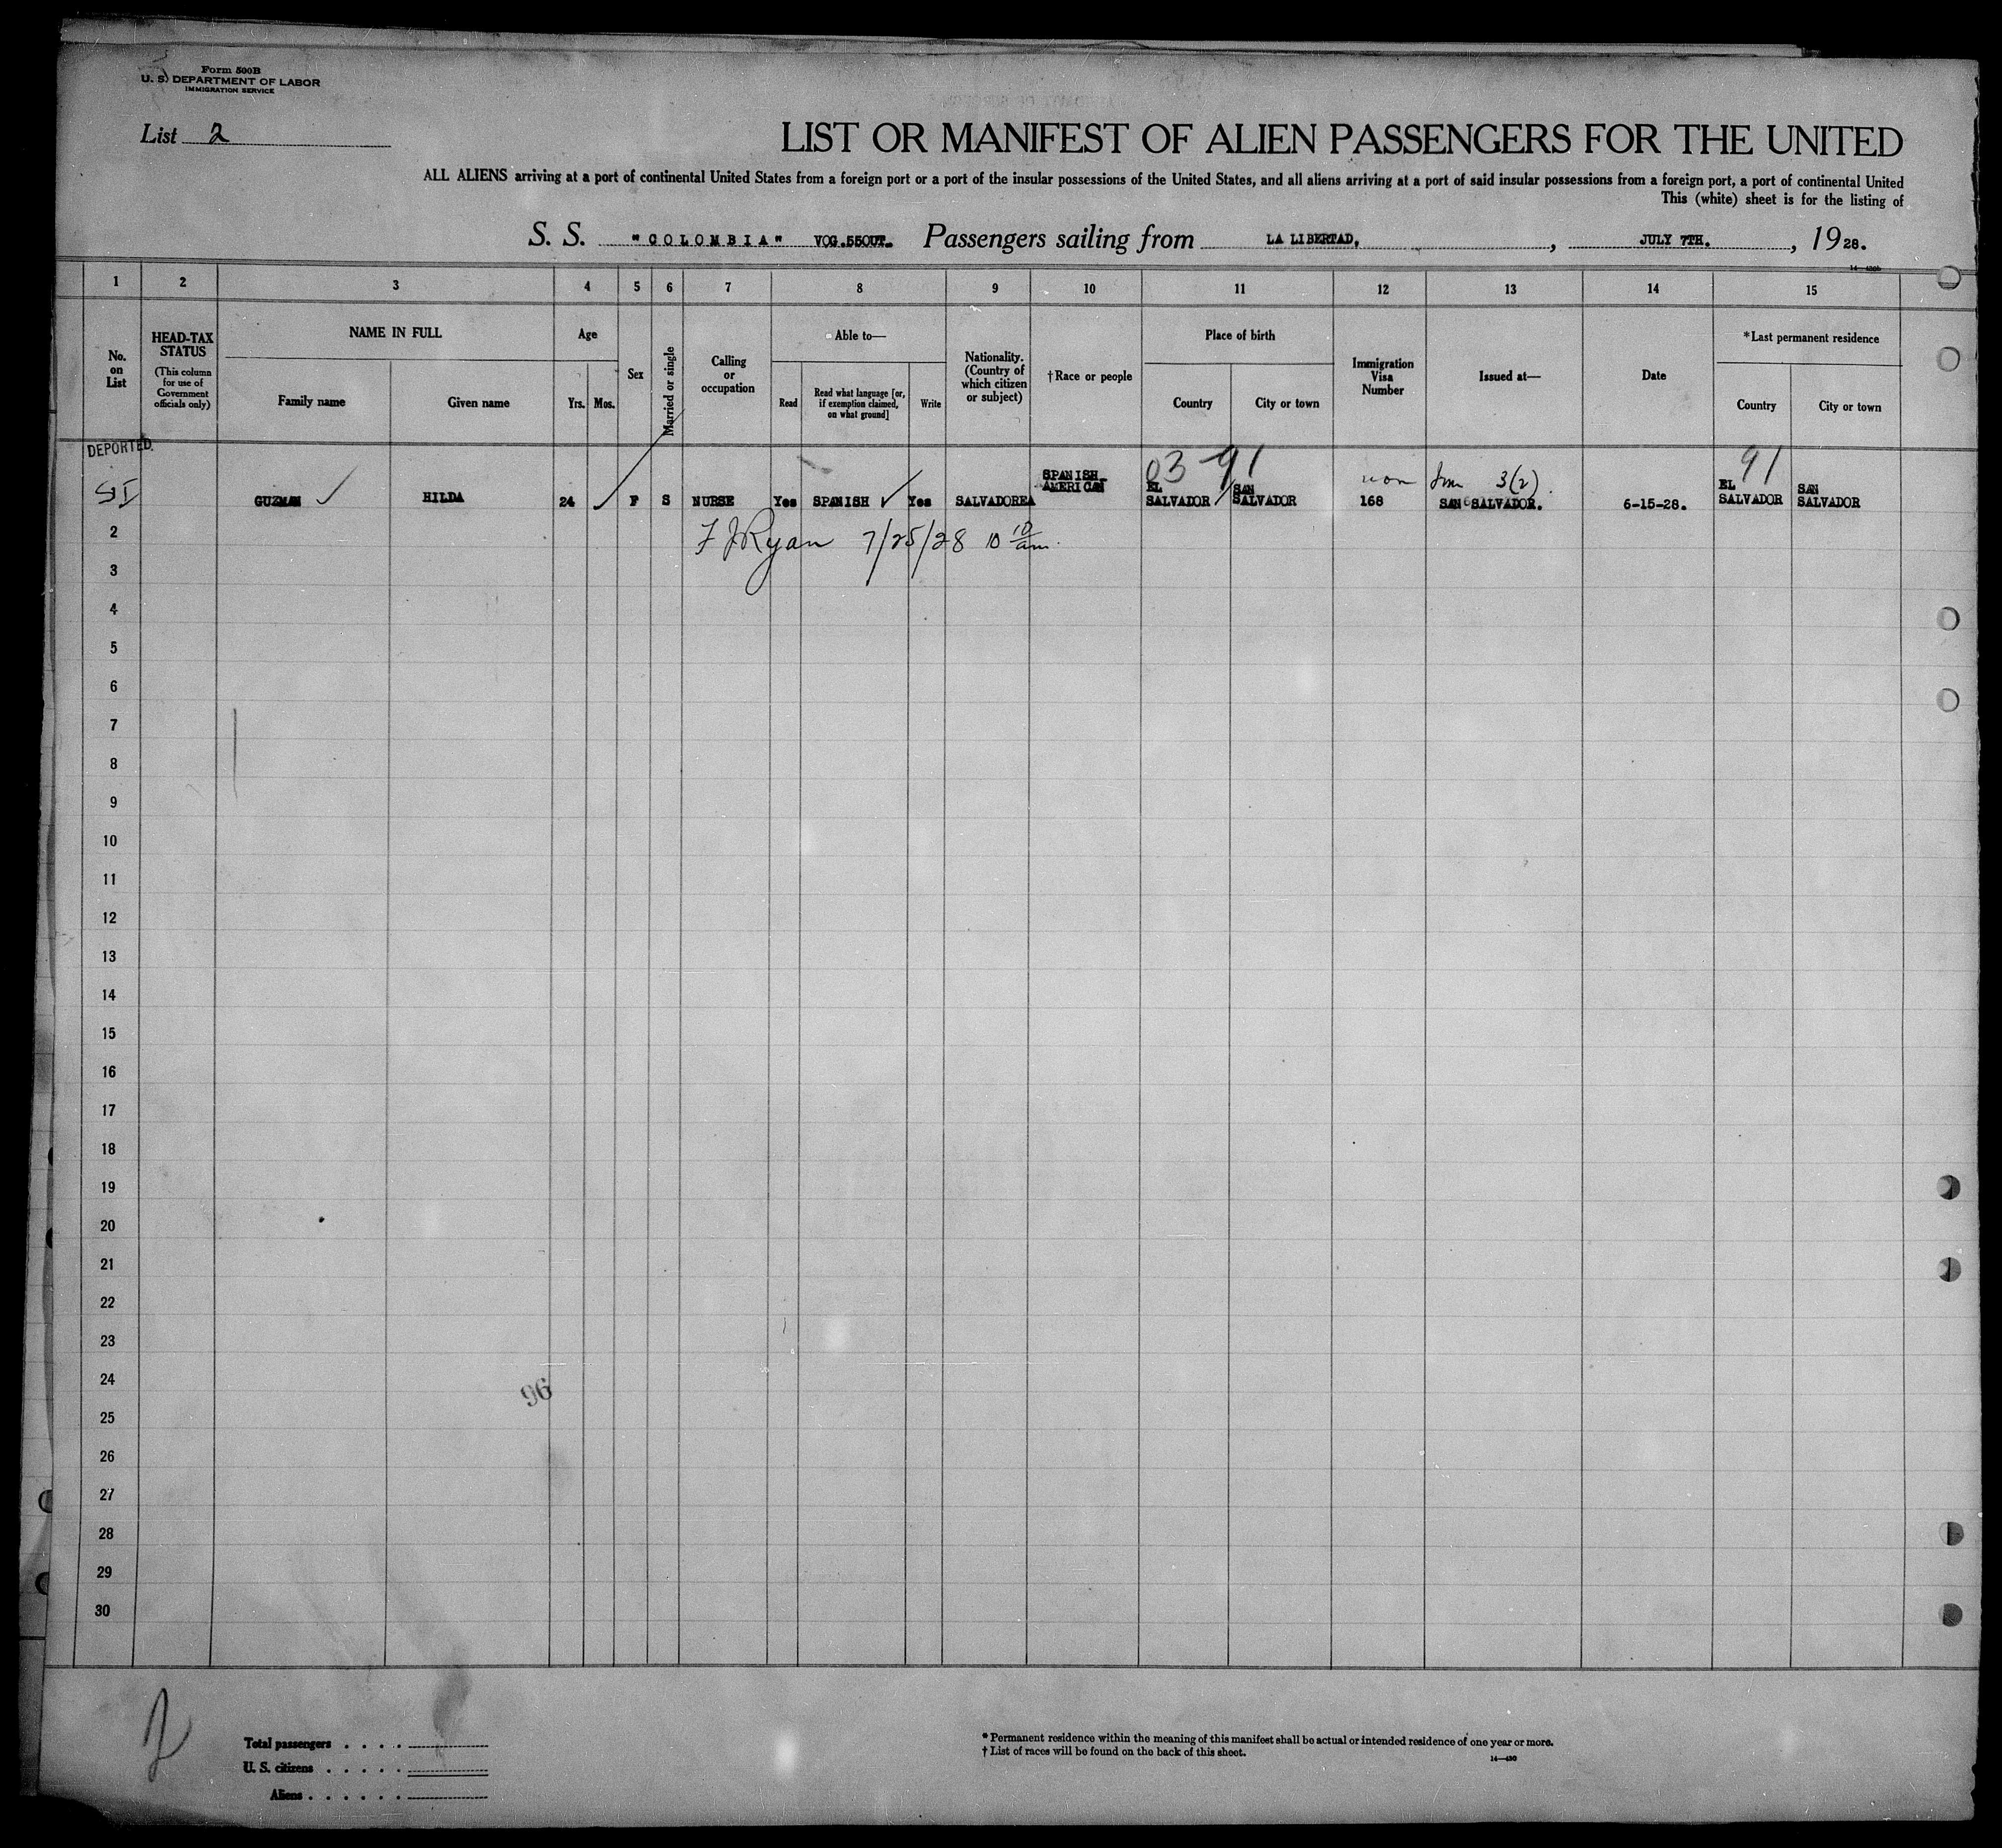 Form 500B
U. S. DEPARTMENT OF LABOR
IMMIGRATION SERVICE
List 2
LIST OR MANIFEST OF ALIEN PASSENGERS FOR THE UNITED
ALL ALIENS arriving at a port of continental United States from a foreign port or a port of the insular possessions of the United States, and all aliens arriving at a port of said insular possessions from a foreign port, a port of continental United
This (white) sheet is for the listing of
S. S. "COLOMBIA" VOG.55OUT. Passengers sailing from LA LIBERTAD, , JULY 7TH. , 1928.
1 2 3 4 5 6 7 8 9 10 11 12 13 14 15
No. on List
HEAD-TAX STATUS
(This column for use of Government officials only)
NAME IN FULL
Family name
Given name
Age
Yrs.
Mos.
Sex
Married or single
Calling or occupation
Able to—
Read
Read what language [or, if exemption claimed, on what ground]
Write
Nationality. (Country of which citizen or subject)
†Race or people
Place of birth
Country
City or town
Immigration Visa Number
Issued at—
Date
*Last permanent residence
Country
City or town
DEPORTED.
SI
GUZMAN ✓ HILDA 24 F S NURSE Yes SPANISH ✓ Yes SALVADOREA SPANISH-AMERICAN EL SALVADOR SAN SALVADOR 168 SAN SALVADOR. 6-15-28. EL SALVADOR SAN SALVADOR
03 91 non Imm 3(2). 91
F J Ryan 7/25/28 10 10/am.
2
3
4
5
6
7
8
9
10
11
12
13
14
15
16
17
18
19
20
21
22
23
24
96
25
26
27
28
29
30
2
Total passengers . . . .
U. S. citizens . . . . .
Aliens . . . . . .
* Permanent residence within the meaning of this manifest shall be actual or intended residence of one year or more.
† List of races will be found on the back of this sheet.